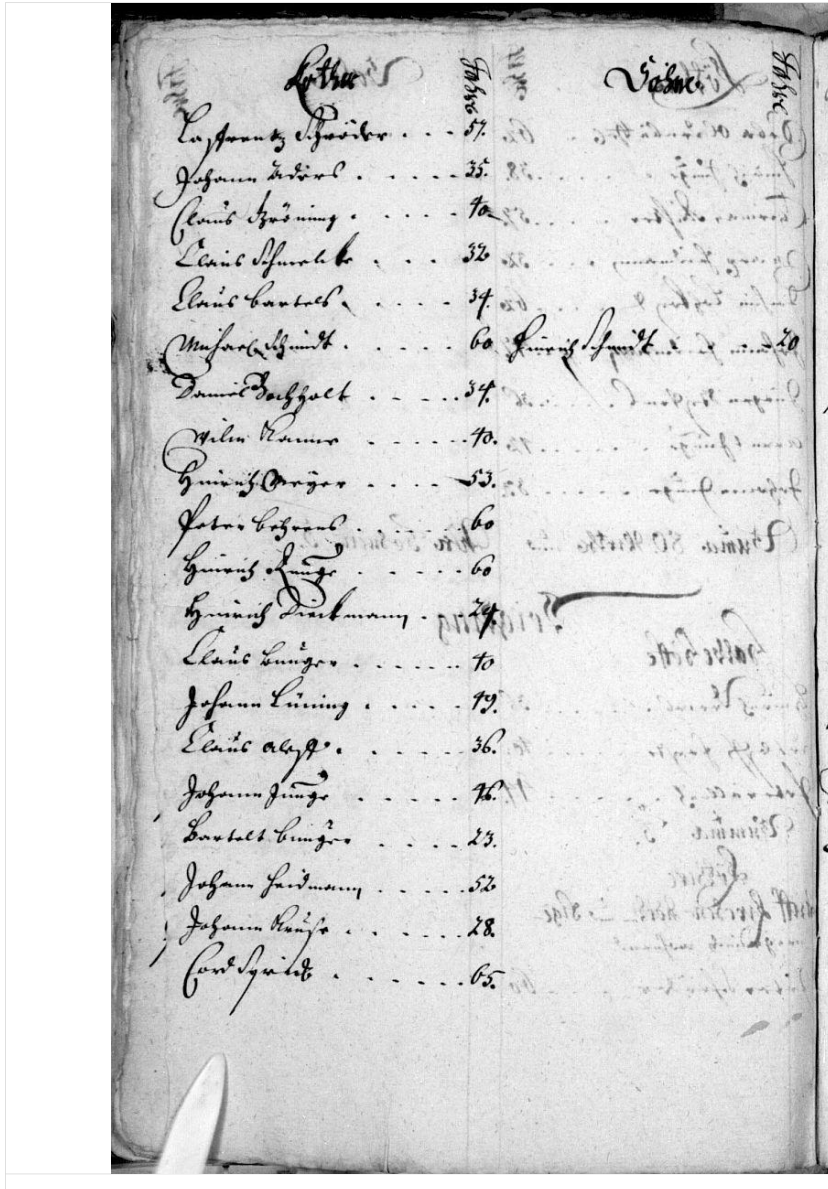 Köther Jahre Söhne Jahre
Laffrentz Schröder . . . 57.
Johann Alders . . . . . 35.
Claus Gröning . . . . . 40
Claus Schmelcke . . . 32
Claus Bartels . . . . 34.
Michael Schmidt . . . . . 60 Hinrich Schmidt 20
Daniel Bochholt . . . . 34.
Wilm . . . . . 40.
Hinrich Meyer . . . . 53.
Peter Behrens . . . . . 60
Hinrich Junge . . . . . 60
Hinrich Dieckmann . 24.
Claus Bünger . . . . . 40
Johann Lüning . . . . 49.
Claus Alff . . . . . 36.
Johann Junge . . . . . 46.
Bartelt Bünger . . . . 23.
Johann Heidmann . . . . 52
Johann Kruse . . . . . 28.
Cord . . . . . . 65.